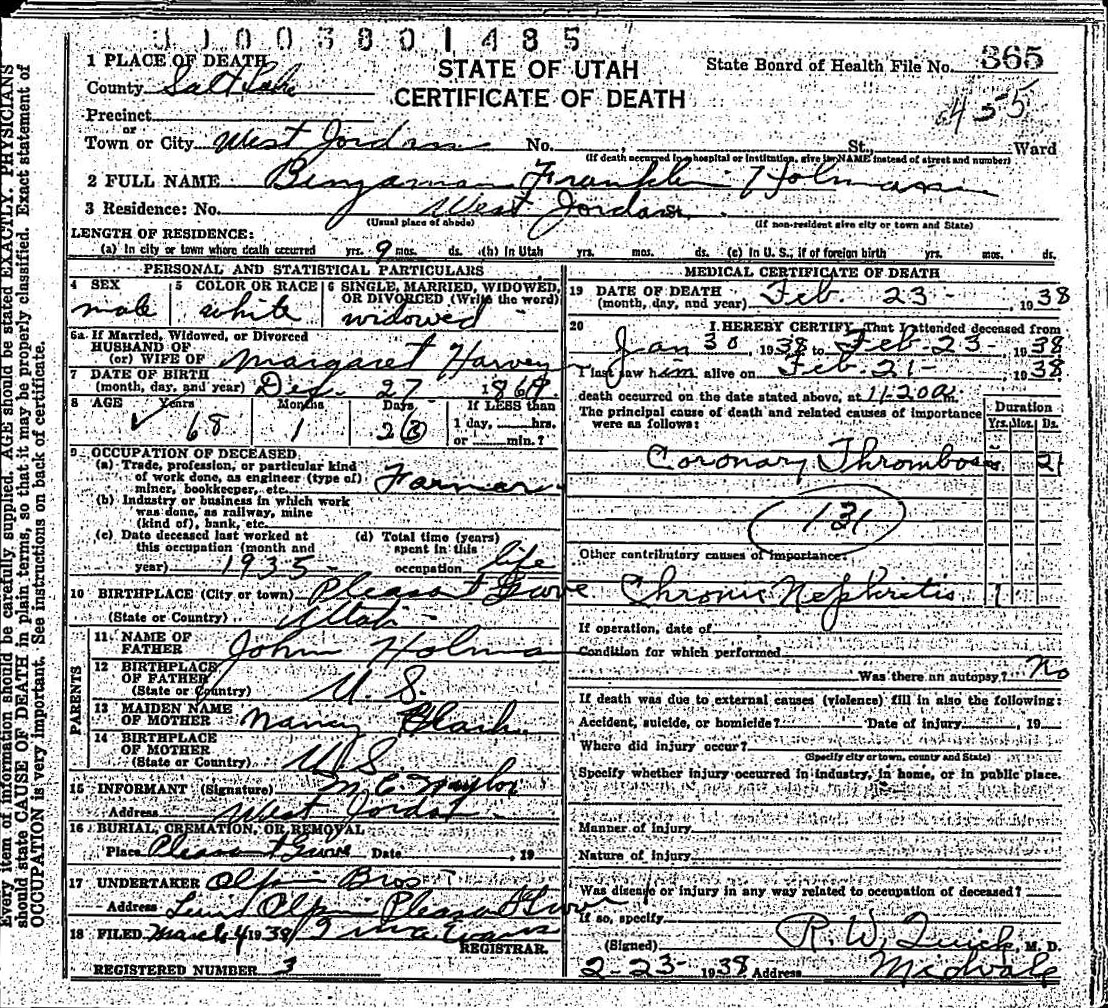 JJ00380 1485
1 PLACE OF DEATH
STATE OF UTAH
State Board of Health File No. 365
County Salt Lake
CERTIFICATE OF DEATH
455
Precinct
or
Town or City West Jordan No. , St., Ward
(If death occurred in a hospital or institution, give its NAME instead of street and number)
2 FULL NAME Benjamin Franklin Holman
3 Residence: No. West Jordan
(Usual place of abode) (If non-resident give city or town and State)
LENGTH OF RESIDENCE:
(a) In city or town where death occurred yrs. 9 mos. ds. (b) In Utah yrs. mos. ds. (c) In U. S., if of foreign birth yrs. mos. ds.
PERSONAL AND STATISTICAL PARTICULARS
4 SEX male
5 COLOR OR RACE white
6 SINGLE, MARRIED, WIDOWED, OR DIVORCED (Write the word) widowed
6a. If Married, Widowed, or Divorced
HUSBAND OF
(or) WIFE OF Margaret Harvey
7 DATE OF BIRTH
(month, day, and year) Dec. 27 1869
8 AGE Years 68 Months 1 Days If LESS than
1 day, hrs.
or min.?
9 OCCUPATION OF DECEASED
(a) Trade, profession, or particular kind
of work done, as engineer (type of)
miner, bookkeeper, etc. Farmer
(b) Industry or business in which work
was done, as railway, mine
(kind of), bank, etc.
(c) Date deceased last worked at
this occupation (month and
year) 1935
(d) Total time (years)
spent in this
occupation life
10 BIRTHPLACE (City or town) Pleasant Grove
(State or Country) Utah
PARENTS
11 NAME OF
FATHER John Holman
12 BIRTHPLACE
OF FATHER
(State or Country) U. S.
13 MAIDEN NAME
OF MOTHER Nancy
14 BIRTHPLACE
OF MOTHER
(State or Country) U S
15 INFORMANT (Signature) M. C. Taylor
Address West Jordan
16 BURIAL, CREMATION, OR REMOVAL
Place Pleasant Grove Date , 19
17 UNDERTAKER Olpin Bros
Address Olpin Pleasant Grove
18 FILED March 4 1938 Evans
REGISTRAR.
REGISTERED NUMBER 3
MEDICAL CERTIFICATE OF DEATH
19 DATE OF DEATH
(month, day, and year) Feb. 23 - , 1938
20 I HEREBY CERTIFY, That I attended deceased from
Jan 30, 1938 to Feb. 23 - , 1938
I last saw him alive on Feb. 21 - , 1938
death occurred on the date stated above, at 11:20 a.
The principal cause of death and related causes of importance
were as follows:
Duration
Yrs. Mos. Ds.
Coronary Thrombosis 21
131
Other contributory causes of importance:
Chronic Nephritis 1
If operation, date of
Condition for which performed
Was there an autopsy? No
If death was due to external causes (violence) fill in also the following:
Accident, suicide, or homicide? Date of injury , 19
Where did injury occur?
(Specify city or town, county and State)
Specify whether injury occurred in industry, in home, or in public place.
Manner of injury
Nature of injury
Was disease or injury in any way related to occupation of deceased?
If so, specify
(Signed) R. W. Quick, M. D.
2-23- 1938 Address Midvale
Every item of information should be carefully supplied. AGE should be stated EXACTLY. PHYSICIANS
should state CAUSE OF DEATH in plain terms, so that it may be properly classified. Exact statement of
OCCUPATION is very important. See instructions on back of certificate.